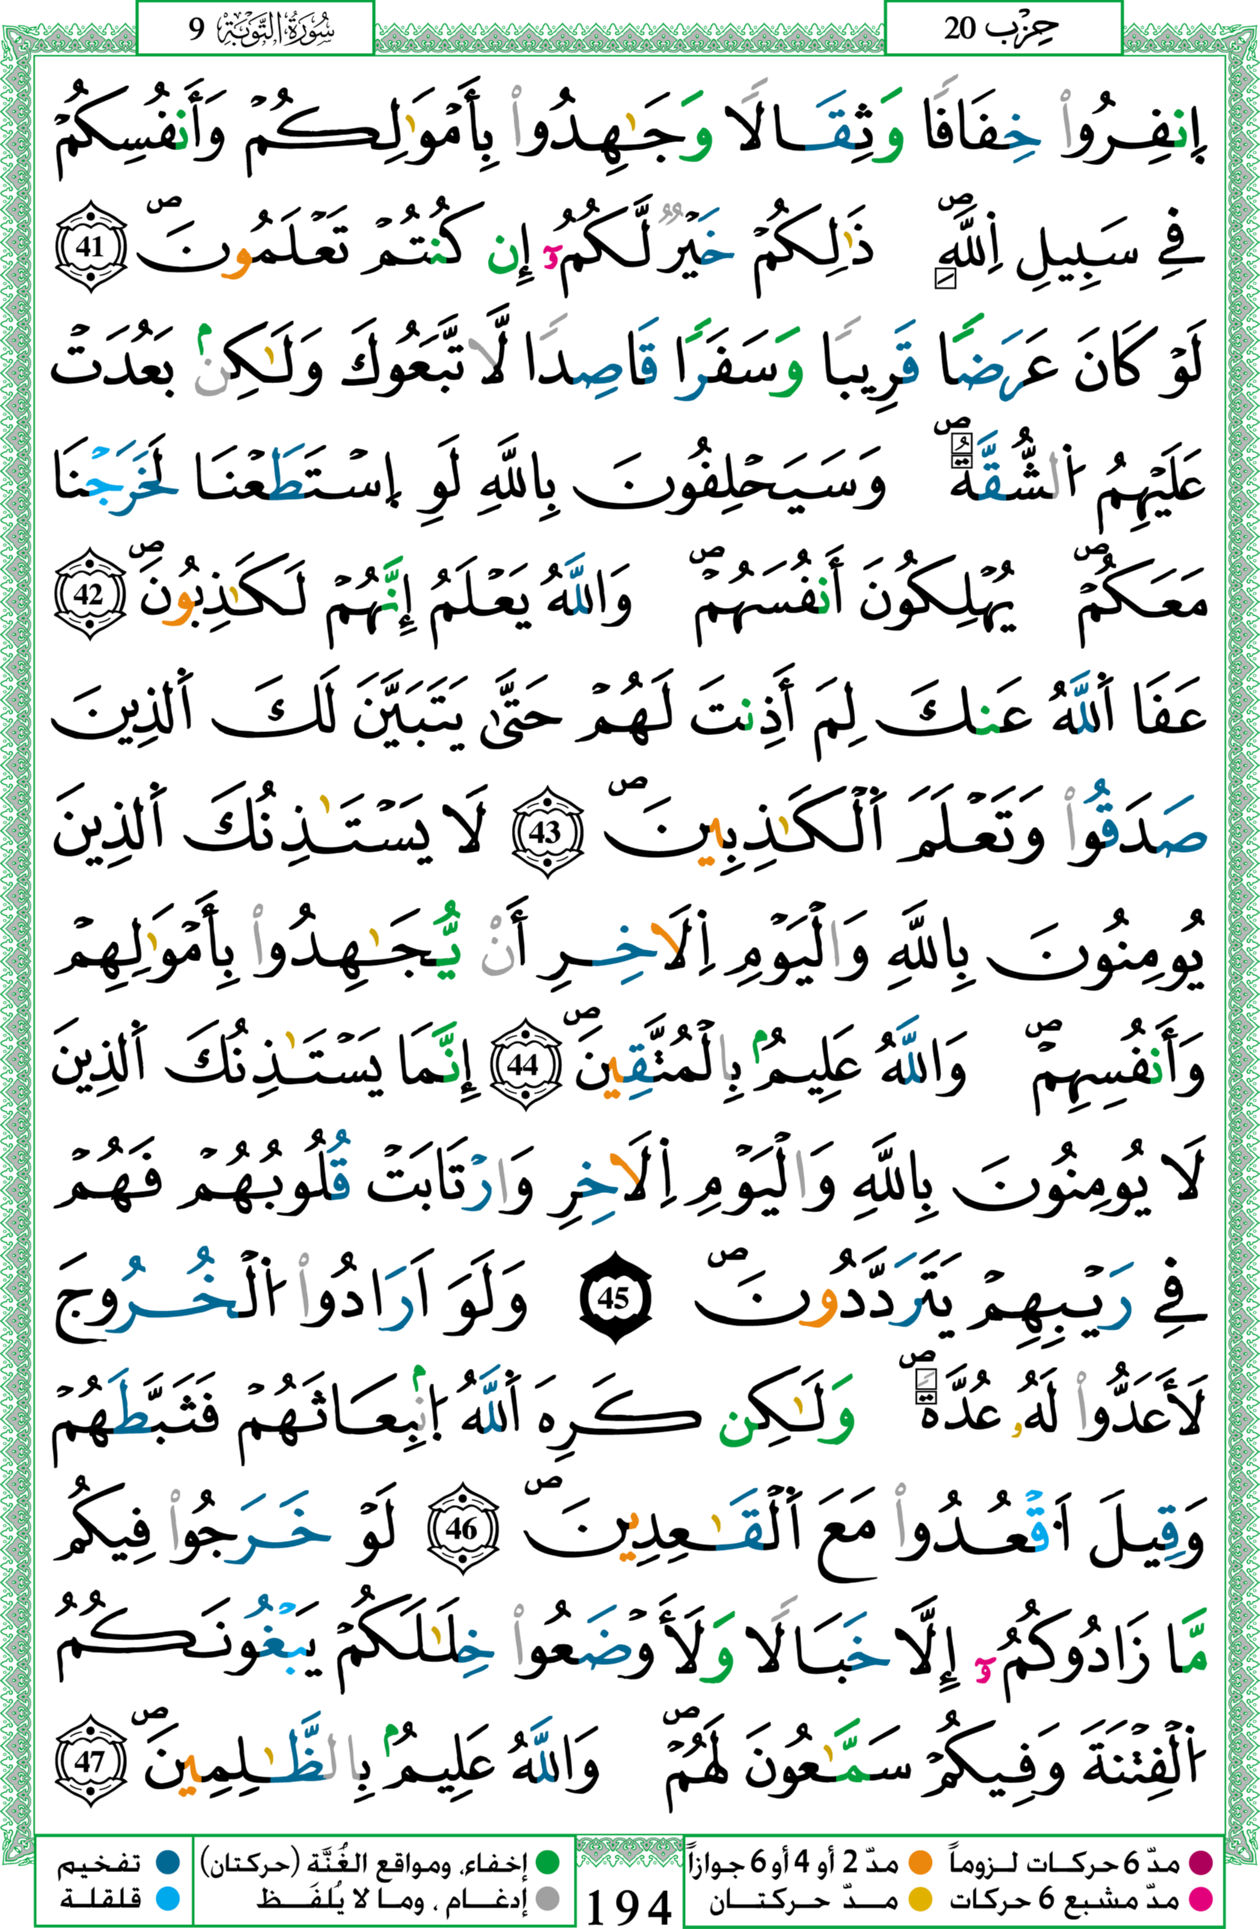 حِزْب 20
سُورَةُ التَّوْبَةِ 9
اِ۪نفِرُواْ خِفَافاٗ وَثِقَالاٗ وَجَٰهِدُواْ بِأَمْوَٰلِكُمْ وَأَنفُسِكُمْ
فِے سَبِيلِ اِ۬للَّهِۖ ذَٰلِكُمْ خَيْرٞ لَّكُمُۥٓ إِن كُنتُمْ تَعْلَمُونَۖ 41
لَوْ كَانَ عَرَضاٗ قَرِيباٗ وَسَفَراٗ قَاصِداٗ لَّاتَّبَعُوكَ وَلَٰكِنۢ بَعُدَتْ
عَلَيْهِمُ اُ۬لشُّقَّةُۖ وَسَيَحْلِفُونَ بِاللَّهِ لَوِ اِ۪سْتَطَعْنَا لَخَرَجْنَا
مَعَكُمْۖ يُهْلِكُونَ أَنفُسَهُمْۖ وَاللَّهُ يَعْلَمُ إِنَّهُمْ لَكَٰذِبُونَۖ 42
عَفَا اَ۬للَّهُ عَنكَ لِمَ أَذِنتَ لَهُمْ حَتَّىٰ يَتَبَيَّنَ لَكَ اَ۬لذِينَ
صَدَقُواْ وَتَعْلَمَ اَ۬لْكَٰذِبِينَۖ 43 لَا يَسْتَٰذِنُكَ اَ۬لذِينَ
يُومِنُونَ بِاللَّهِ وَالْيَوْمِ اِ۬لَاخِرِ أَنْ يُّجَٰهِدُواْ بِأَمْوَٰلِهِمْ
وَأَنفُسِهِمْۖ وَاللَّهُ عَلِيمُۢ بِالْمُتَّقِينَۖ 44 إِنَّمَا يَسْتَٰذِنُكَ اَ۬لذِينَ
لَا يُومِنُونَ بِاللَّهِ وَالْيَوْمِ اِ۬لَاخِرِ وَارْتَابَتْ قُلُوبُهُمْ فَهُمْ
فِے رَيْبِهِمْ يَتَرَدَّدُونَۖ 45 وَلَوَ اَرَادُواْ اُ۬لْخُرُوجَ
لَأَعَدُّواْ لَهُۥ عُدَّةٗۖ وَلَٰكِن كَرِهَ اَ۬للَّهُ اُ۪نۢبِعَاثَهُمْ فَثَبَّطَهُمْ
وَقِيلَ اَ۟قْعُدُواْ مَعَ اَ۬لْقَٰعِدِينَۖ 46 لَوْ خَرَجُواْ فِيكُم
مَّا زَادُوكُمُۥٓ إِلَّا خَبَالاٗ وَلَأَوْضَعُواْ خِلَٰلَكُمْ يَبْغُونَكُمُ
اُ۬لْفِتْنَةَ وَفِيكُمْ سَمَّٰعُونَ لَهُمْۖ وَاللَّهُ عَلِيمُۢ بِالظَّٰلِمِينَۖ 47
مدّ 6 حركات لزوماً مدّ 2 أو 4 أو 6 جوازاً
مدّ مشبع 6 حركات مدّ حركتان
194
إخفاء، ومواقع الغُنَّة (حركتان) تفخيم
إدغام ، وما لا يُلفَظ قلقلة